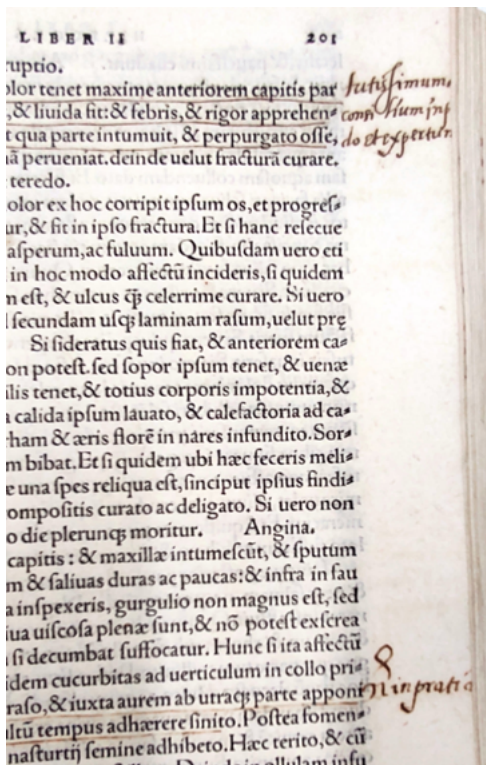 LIBER II 201
ruptio.
olor tenet maxime anteriorem capitis par
, & liuida fit: & febris, & rigor apprehen⸗
t qua parte intumuit, & perpurgato osse,
ã perueniat. deinde uelut fracturã curare.
teredo.
olor ex hoc corripit ipsum os, et progres⸗
ur, & fit in ipso fractura. Et si hanc resecue
asperum, ac fuluum. Quibusdam uero eti
in hoc modo affectũ incideris, si quidem
m est, & ulcus q̃ꝫ celerrime curare. Si uero
l secundam usqꝫ laminam rasum, uelut prę
Si sideratus quis fiat, & anteriorem ca⸗
on potest. sed sopor ipsum tenet, & uenæ
ilis tenet, & totius corporis impotentia, &
a calida ipsum lauato, & calefactoria ad ca⸗
rham & æris florẽ in nares infundito. Sor⸗
m bibat. Et si quidem ubi hæc feceris meli⸗
e una spes reliqua est, sinciput ipsius findi⸗
ompositis curato ac deligato. Si uero non
o die plerunqꝫ moritur. Angina.
capitis : & maxillæ intumescũt, & sputum
m & saliuas duras ac paucas: & infra in fau
a inspexeris, gurgulio non magnus est, sed
iua uiscosa plenæ sunt, & nõ potest exscrea
si decumbat suffocatur. Hunc si ita affectũ
idem cucurbitas ad uerticulum in collo pri⸗
raso, & iuxta aurem ab utraqꝫ parte apponi
ultũ tempus adhærere sinito. Postea fomen⸗
nasturtij semine adhibeto. Hæc terito, & cũ
in ollulam infu
tutissimum
consilium
do et expertum
in pratica